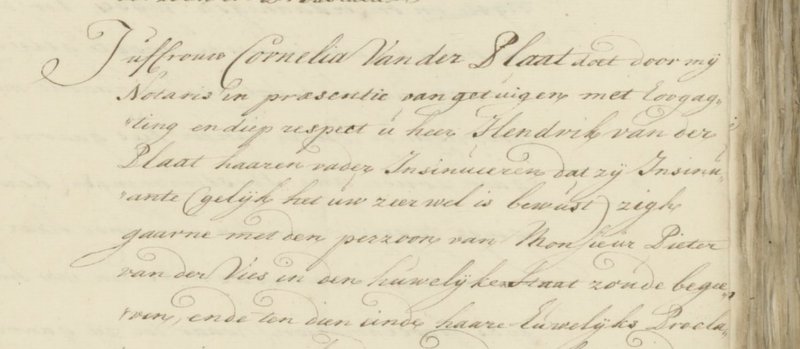 Juffrouw Cornelia Van der Plaat doet door mij
Notaris in præsentie van getuigen met Eorgag„
„ting en diep respect u heer Hendrik van der
Plaat haaren vader Insinueeren dat zij Insinu„
„ante (gelijk het uw zeer wel is bewust) zigh
gaarne met den perzoon van Monsieur Pieter
van der Vies in den huwelijken Staat zoude begee„
„ven, ende ten dien einde haare huwelijks Procla„